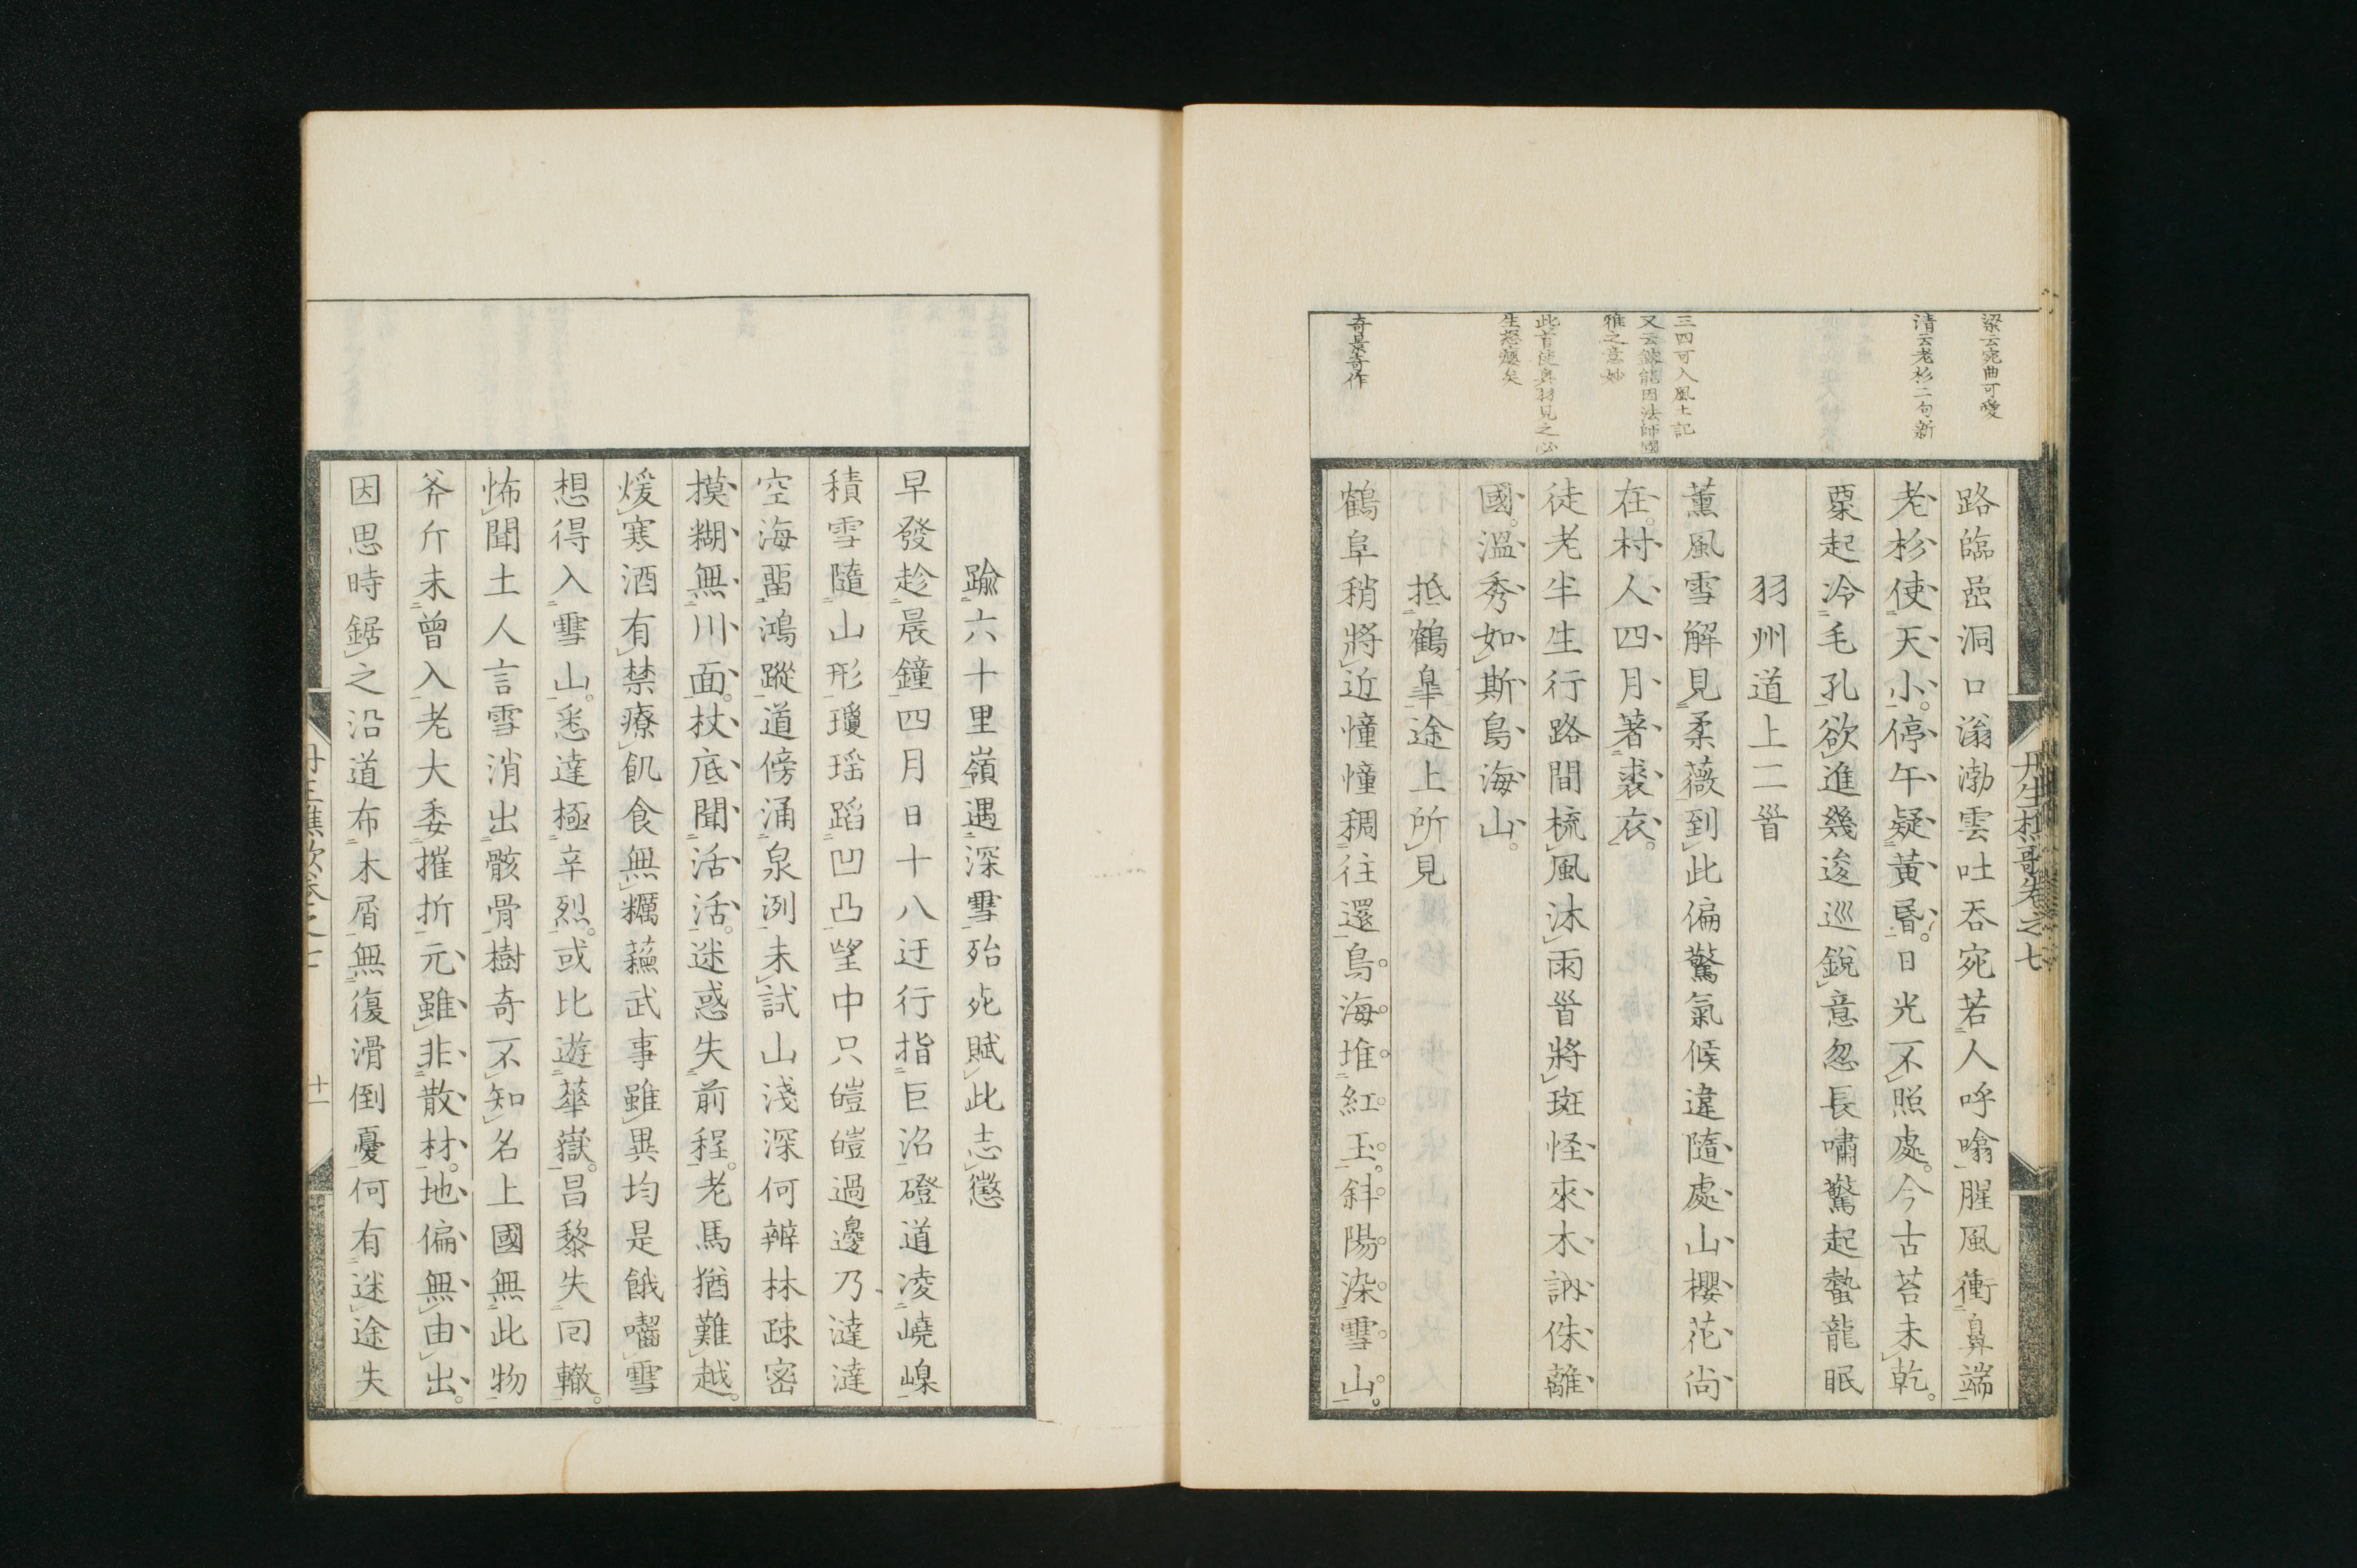 梁云宛曲可愛
清云老杉二句新
三四可入風土記
雅之意妙
此首使奧羽見之必
生怒癭矣
奇景奇作
路臨嵒洞口滃渤雲吐吞宛若人呼噏腥風衝鼻端
老杉使天小停午疑黃昏日光不照處今古苔未乾
粟起冷毛孔欲進幾逡巡銳意忽長嘯驚起蟄龍眠
羽州道上二首
薰風雪解見柔薇到此偏驚氣候違隨處山櫻花尚
在村人四月著裘衣
徒老半生行路間梳風沐雨首將斑怪來木訥侏離
國溫秀如斯鳥海山
抵鶴皐途上所見
鶴阜稍將近憧憧稠往還鳥海堆紅玉斜陽染雪山
丹生樵歌卷之七
踰六十里嶺遇深雪殆死賦此志懲
早發趁晨鐘四月日十八迂行指巨沼磴道凌嶢嵲
積雪隨山形瓊瑤蹈凹凸望中只皚皚過邊乃澾澾
空海畱鴻蹤道傍涌泉洌未試山淺深何辨林疎密
摸糊無川面杖底聞活活迷惑失前程老馬猶難越
煖寒酒有禁療飢食無糲蘓武事雖異均是餓囓雪
想得入雪山悉達極辛烈或比遊華嶽昌黎失回轍
怖聞土人言雪消出骸骨樹奇不知名上國無此物
斧斤未曾入老大委摧折元雖非散材地偏無由出
因思時鋸之沿道布木屑無復滑倒憂何有迷途失
十一